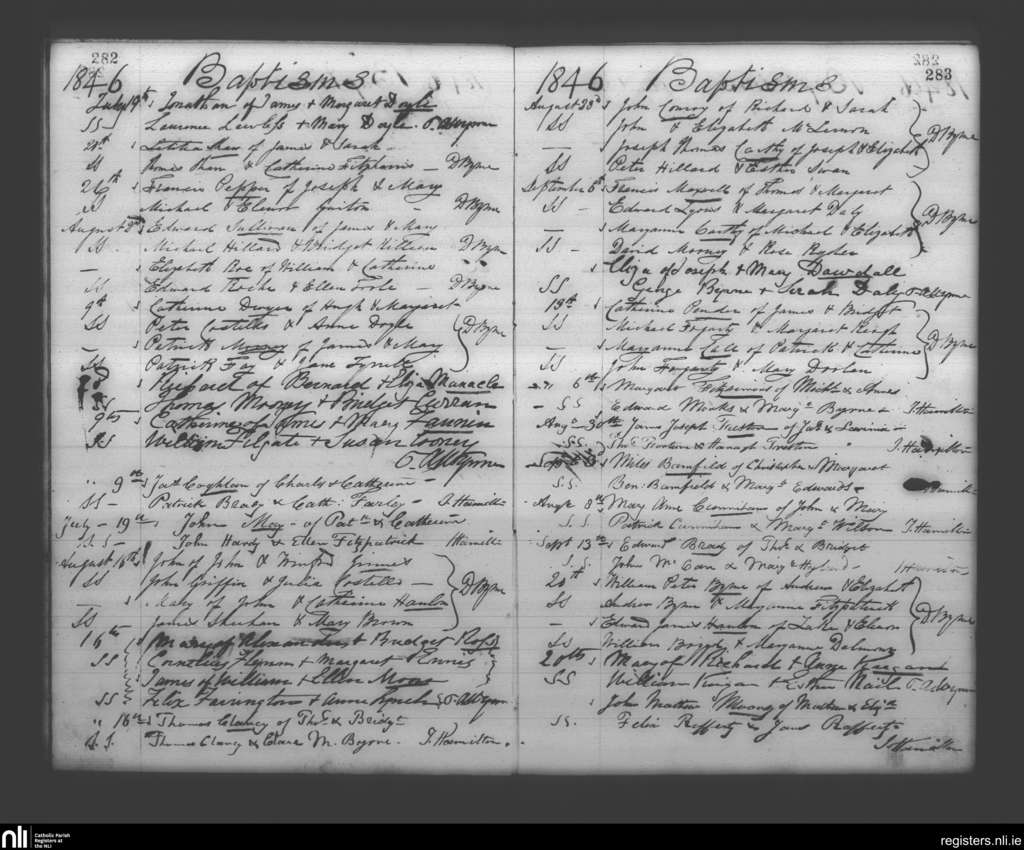 282
1846 Baptisms
July 19th s Jonathan of James & Margaret Doyle
SS Laurence Lawless & Mary Doyle
s Letitia Shaw of James & Sarah
SS James Shaw & Catherine Fitzharris — D Byrne
26th s Francis Pepper of Joseph & Mary
SS Michael & Elenor Quirton D Byrne
August 2nd s Edward Sullivan of James & Mary
SS Michael Hillard & Bridget Killeen D Byrne
— s Elizabeth Roe of William & Catherine
SS Edward Roche & Ellen Toole — D Byrne
9th s Catherine Dwyer of Hugh & Margaret
SS Peter Costello & Anne Doyle
— s Patrick Murray of James & Mary D Byrne
SS Patrick Fay & Jane
s Margaret of Bernard & Eliza
SS Thomas Mooney & Bridget Curran
9th s Catherine of James & Mary
SS William Elgate & Susan Cooney
" 9th s Jas Coghlan of Charles & Catherine
SS — Patrick Brady & Cath: Farley — J. Hamilton
July — 19th s John May of Patk & Catherine
S.S — John Hardy & Ellen Fitzpatrick Hamilton
August 16th s John of John & Winifred Grimes
SS John Griffin & Julia Costello —
— s Mary of John & Catherine Hanlon D Byrne
SS James Sheehan & Mary Brown
16th s Mary of Alexander & Bridget Ross
SS Cornelius Flynn & Margaret
s James of William & Ellen Moore
SS Felix Farington & Anne Lynch
" 16th s Thomas Clancy of Thos & Bridgt
S.S. Thomas Clancy & Clara M. Byrne. J. Hamilton.
282
283
1846 Baptisms
August 23rd s John Conroy of Richard & Sarah
SS John & Elizabeth McLernon
— s Joseph Thomas Carthy of Joseph & Elizabeth D Byrne
SS Peter Hillard & Esther Swan
September 6th s Francis Maxwell of Thomas & Margaret
SS — Edward Lyons & Margaret Daly
s Maryanne Carthy of Michael & Elizabeth D Byrne
SS — David Mooney & Rose
s Eliza of Joseph & Mary Dowdall
SS George Byrne & Sarah Daly
13th s Catherine Pender of James & Bridget
SS Michael Fogarty & Margaret Keogh
— s Maryanne Tale of Patrick & Catherine D Byrne
SS John Fogarty & Mary Dorlan
6th s Margaret Fitzsimons of Michl & Anne
— S.S Edward Minks & Margt Byrne J. Hamilton
Augt 30th s James Joseph Preston of Jas & Lavinia
S.S. Thos Preston & Hannagh Preston J. Hamilton
s Miles Barnfield of Christopher & Margaret
S.S. Ben: Barnfield & Margt Edwards Hamilton
8th s Mary Anne of John & Mary
S.S. Patrick & Margt Wilson J. Hamilton
Sept 13th s Edward Brady of Thos & Bridget
S.S. John McCann & Mary
20th s William Peter Byrne of Andrew & Elizabeth
SS Andrew Byrne & Maryanne Fitzpatrick
— s Edward James Hanlon of Luke & Eleanor D Byrne
SS William Brophy & Maryanne
20th s Mary of Richard &
SS William & Esther
s John Mathew Murray of Mathew & Elizth
SS. Felix Rafferty & Jane Rafferty
J Hamilton
nli
Catholic Parish
Registers at
the NLI
registers.nli.ie